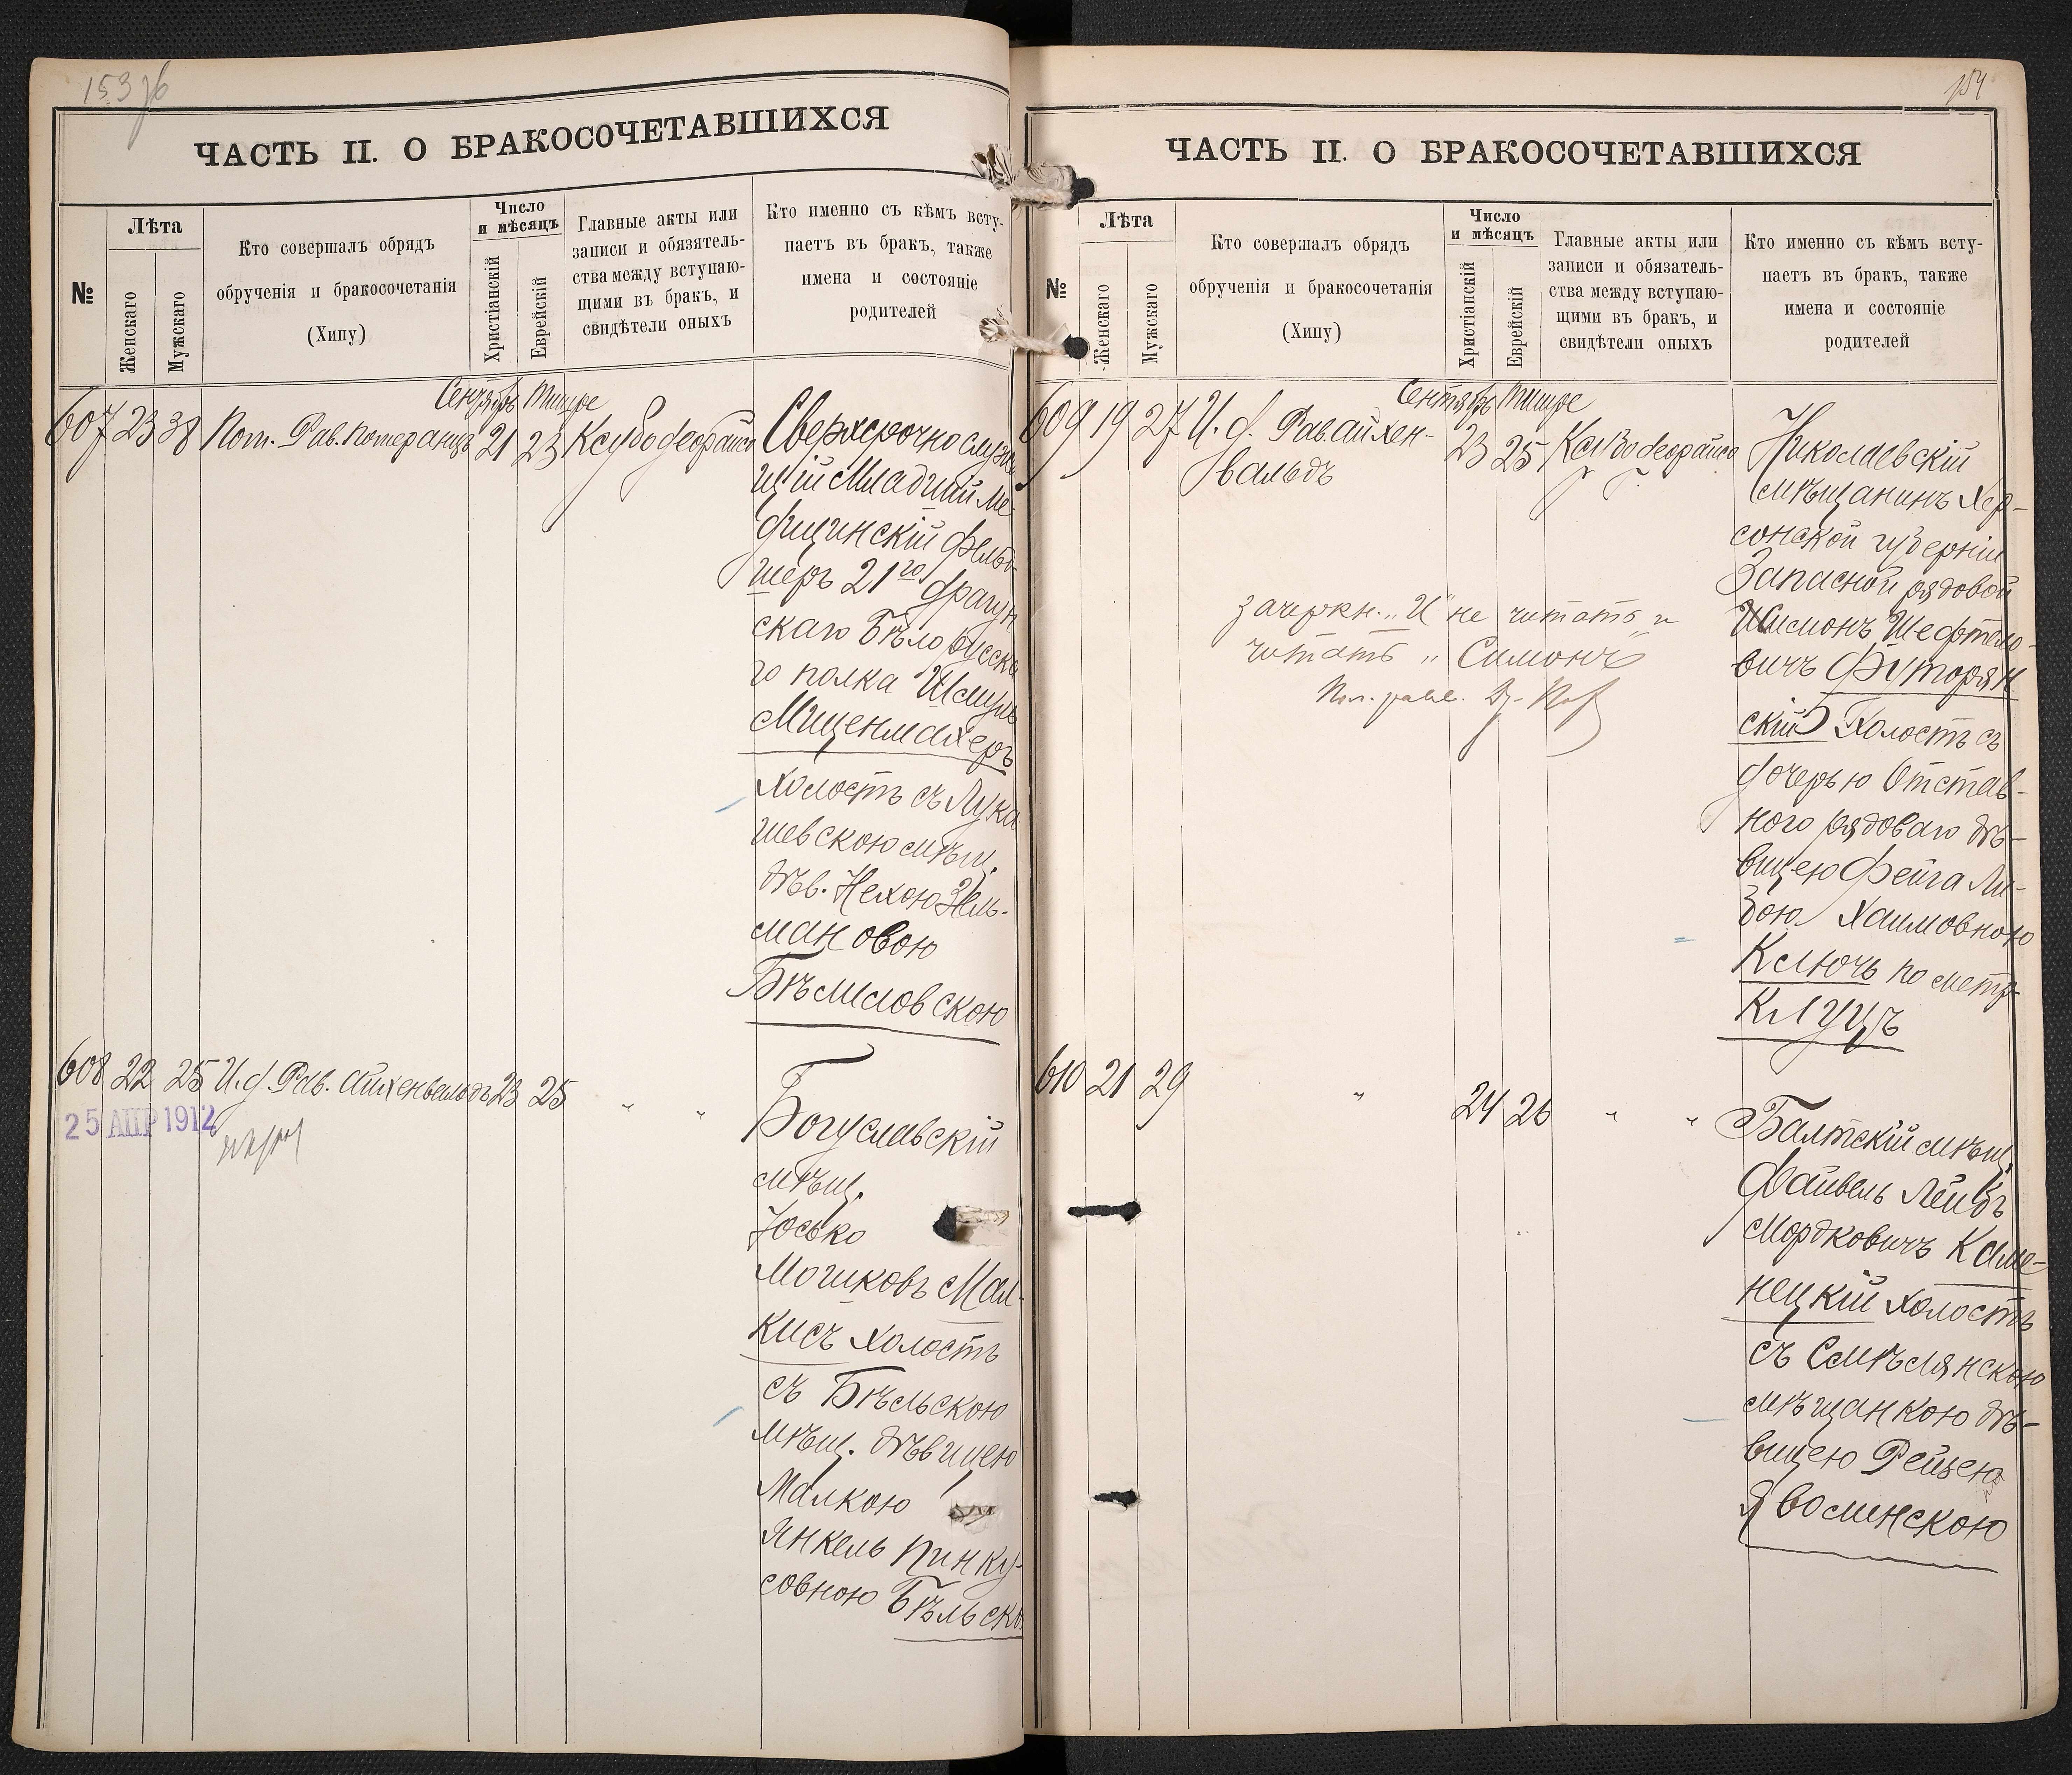 153 об
ЧАСТЬ II. О БРАКОСОЧЕТАВШИХСЯ
№
Лѣта
Женскаго
Мужскаго
Кто совершалъ обрядъ
обрученія и бракосочетанія
(Хипу)
Число
и мѣсяцъ
Христіанскій
Еврейскій
Главные акты или
записи и обязатель-
ства между вступаю-
щими въ бракъ, и
свидѣтели оныхъ
Кто именно съ кѣмъ всту-
паетъ въ бракъ, также
имена и состояніе
родителей
Сентябрь Тишре
607 23 38 Пом. Рав. Потеранцъ 21 23 Ксубо деорайсо
Сверхсрочно служа
щій Младшій Ме-
дицинскій Фельд-
шеръ 21го драгун
скаго Бѣлорусска
го полка Шмуль
Миценмахеръ
холостъ съ Лука
шевскою мѣщ.
дѣв. Нехою Зель-
мановою
Бѣлиловскою
608 22 25 И. д. Рав. Айхенвальдъ 23 25 " "
25 АПР 1912
Богуславскій
мѣщ.
Юсько
Мошковъ Мал-
кисъ холостъ
съ Бѣльскою
мѣщ. дѣвицею
Малкою
Янкель Пинку-
совною Бѣльско
154
ЧАСТЬ II. О БРАКОСОЧЕТАВШИХСЯ
№
Лѣта
Женскаго
Мужскаго
Кто совершалъ обрядъ
обрученія и бракосочетанія
(Хипу)
Число
и мѣсяцъ
Христіанскій
Еврейскій
Главные акты или
записи и обязатель-
ства между вступаю-
щими въ бракъ, и
свидѣтели оныхъ
Кто именно съ кѣмъ всту-
паетъ въ бракъ, также
имена и состояніе
родителей
Сентябрь Тишре
609 19 27 И. д. Рав. Айхен-
вальдъ
23 25 Ксубо деорайсо
зачеркн. „И" не читать и
читать „Симонъ"
Николаевскій
мѣщанинъ Хер-
сонской губерніи
Запасной рядовой
Шимонъ Шефтело-
вичъ Футорян
скій холостъ съ
дочерью Отстав-
ного рядоваго дѣ-
вицею Фейга Ли-
зою Хаимовною
Ключъ по метр
Клуцъ
610 21 29 " 24 26 " "
Балтскій мѣщ.
Файвель Лейбъ
Мордковичъ Каме-
нецкій холостъ
съ Смѣлянскою
мѣщанкою дѣ-
вицею Рейзею
Яволинскою